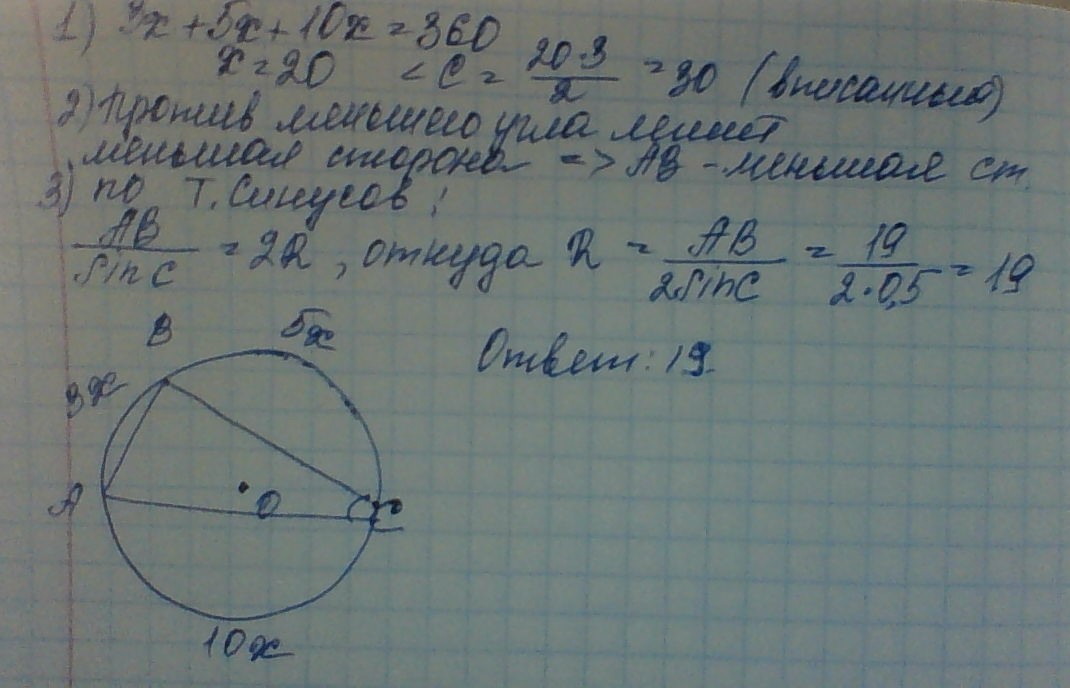 1) 3x + 5x + 10x = 360
x = 20 < C = 20·3/2 = 30 (вписанный)
2) Против меньшего угла лежит
меньшая сторона => AB - меньшая ст.
3) по Т. Синусов:
AB/sinC = 2R, откуда R = AB/2sinC = 19/2·0,5 = 19
Ответ: 19
B 5x
3x
A O C
10x